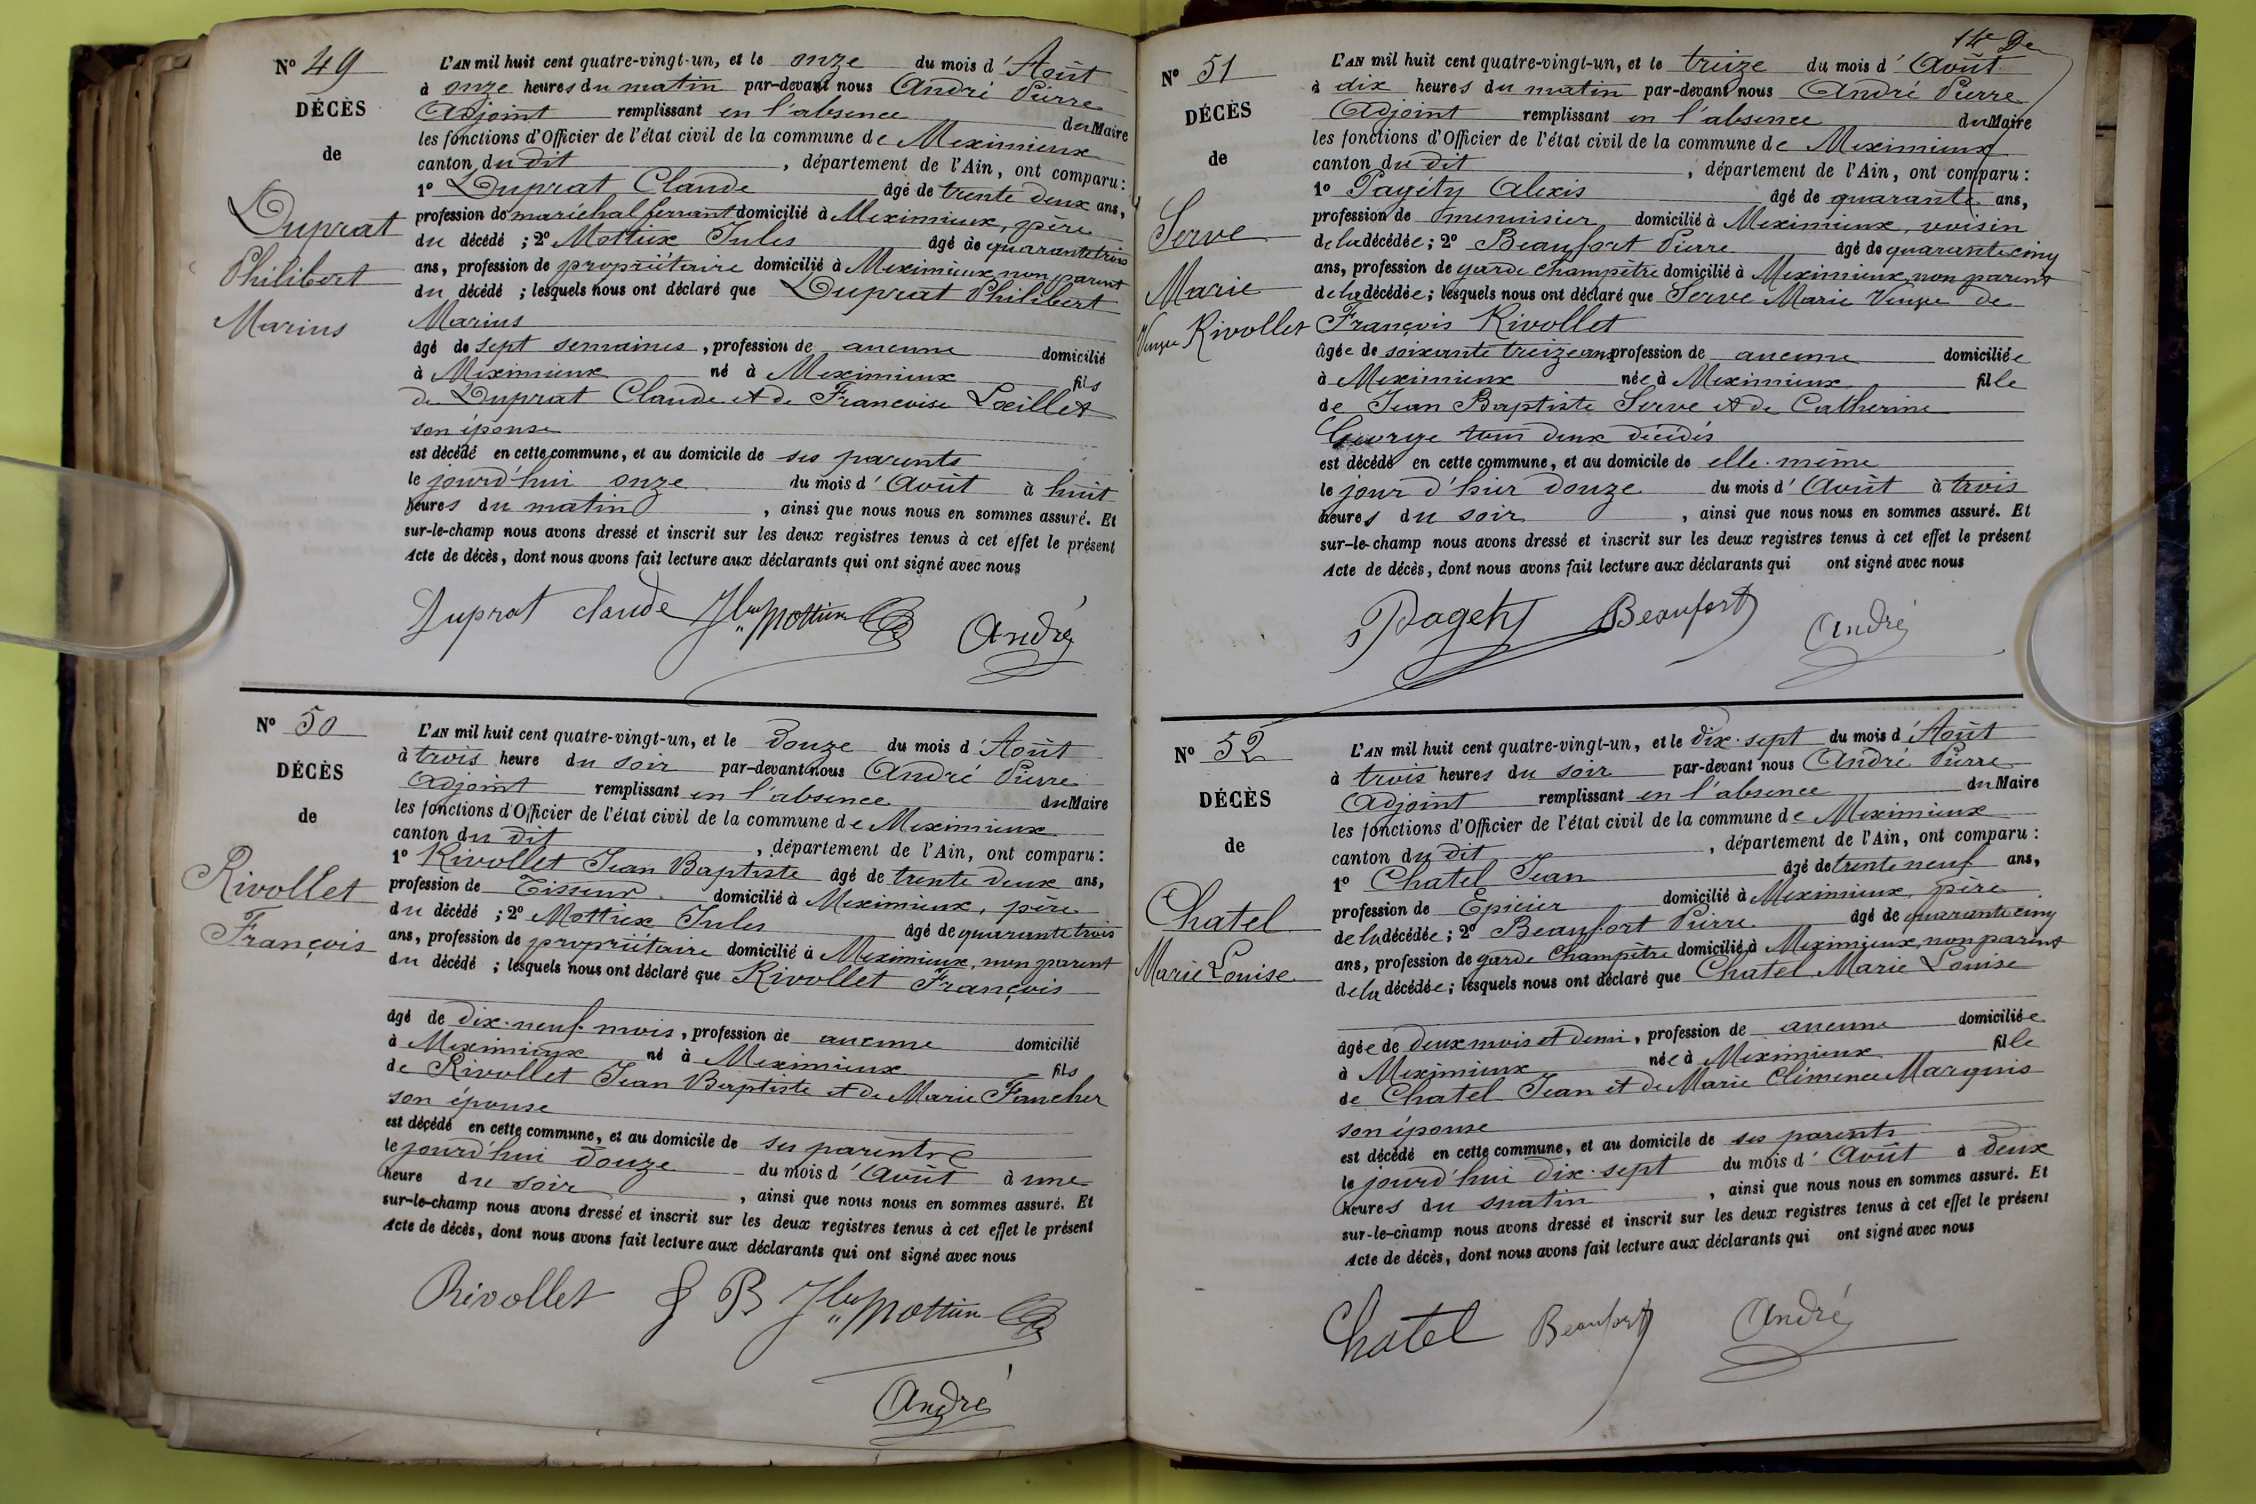 No 49
DÉCÈS
de
Duprat
Philibert
Marius
L'AN mil huit cent quatre-vingt-un, et le onze du mois d'Août
à onze heures du matin par-devant nous André Pierre
Adjoint remplissant en l'absence du Maire
les fonctions d'Officier de l'état civil de la commune de Meximieux
canton du dit , département de l'Ain, ont comparu :
1o Duprat Claude âgé de trente deux ans,
profession de maréchal ferrant domicilié à Meximieux, père
du décédé ; 2o Mottiex Jules âgé de quarante trois
ans, profession de propriétaire domicilié à Meximieux, non parent
du décédé ; lesquels nous ont déclaré que Duprat Philibert
Marius
âgé de sept semaines, profession de aucune domicilié
à Meximieux né à Meximieux fils
de Duprat Claude et de Francoise
son épouse
est décédé en cette commune, et au domicile de ses parents
le jourd'hui onze du mois d'Août à huit
heures du matin , ainsi que nous nous en sommes assuré. Et
sur-le-champ nous avons dressé et inscrit sur les deux registres tenus à cet effet le présent
Acte de décès, dont nous avons fait lecture aux déclarants qui ont signé avec nous
Duprat claude Mottiex André
No 50
DÉCÈS
de
Rivollet
François
L'AN mil huit cent quatre-vingt-un, et le Douze du mois d'Août
à trois heure du soir par-devant nous André Pierre
Adjoint remplissant en l'absence du Maire
les fonctions d'Officier de l'état civil de la commune de Meximieux
canton du dit , département de l'Ain, ont comparu :
1o Rivollet Jean Baptiste âgé de trente Deux ans,
profession de Tisseur domicilié à Meximieux, père
du décédé ; 2o Mottiex Jules âgé de quarante trois
ans, profession de propriétaire domicilié à Meximieux, non parent
du décédé ; lesquels nous ont déclaré que Rivollet François
âgé de dix-neuf mois, profession de aucune domicilié
à Meximieux né à Meximieux fils
de Rivollet Jean Baptiste et de Marie Faucher
son épouse
est décédé en cette commune, et au domicile de ses parents
le jourd'hui Douze du mois d'Août à une
heure du soir , ainsi que nous nous en sommes assuré. Et
sur-le-champ nous avons dressé et inscrit sur les deux registres tenus à cet effet le présent
Acte de décès, dont nous avons fait lecture aux déclarants qui ont signé avec nous
Rivollet J B Mottiex
André
No 51
DÉCÈS
de
Serve
Marie
Veuve Rivollet
L'AN mil huit cent quatre-vingt-un, et le treize du mois d'Août
à dix heures du matin par-devant nous André Pierre
Adjoint remplissant en l'absence du Maire
les fonctions d'Officier de l'état civil de la commune de Meximieux
canton du dit , département de l'Ain, ont comparu :
1o Pagéty Alexis âgé de quarante ans,
profession de menuisier domicilié à Meximieux, voisin
de la décédée ; 2o Beaufort Pierre âgé de quarante cinq
ans, profession de garde champêtre domicilié à Meximieux, non parent
de la décédée ; lesquels nous ont déclaré que Serve Marie Veuve de
François Rivollet
âgée de soixante treize ans profession de aucune domiciliée
à Meximieux née à Meximieux fille
de Jean Baptiste Serve et de Catherine
George tous deux décédés
est décédé en cette commune, et au domicile de elle-même
le jour d'hier Douze du mois d'Août à trois
heures du soir , ainsi que nous nous en sommes assuré. Et
sur-le-champ nous avons dressé et inscrit sur les deux registres tenus à cet effet le présent
Acte de décès, dont nous avons fait lecture aux déclarants qui ont signé avec nous
Pagety Beaufort André
No 52
DÉCÈS
de
Chatel
Marie Louise
L'AN mil huit cent quatre-vingt-un, et le Dix-sept du mois d'Août
à trois heures du soir par-devant nous André Pierre
Adjoint remplissant en l'absence du Maire
les fonctions d'Officier de l'état civil de la commune de Meximieux
canton du dit , département de l'Ain, ont comparu :
1o Chatel Jean âgé de trente neuf ans,
profession de Epicier domicilié à Meximieux, père
de la décédée ; 2o Beaufort Pierre âgé de quarante cinq
ans, profession de garde Champêtre domicilié à Meximieux, non parent
de la décédée ; lesquels nous ont déclaré que Chatel Marie Louise
âgée de deux mois et demi, profession de aucune domiciliée
à Meximieux née à Meximieux fille
de Chatel Jean et de Marie Clémence Marquis
son épouse
est décédé en cette commune, et au domicile de ses parents
le jourd'hui dix-sept du mois d'Août à Deux
heures du matin , ainsi que nous nous en sommes assuré. Et
sur-le-champ nous avons dressé et inscrit sur les deux registres tenus à cet effet le présent
Acte de décès, dont nous avons fait lecture aux déclarants qui ont signé avec nous
Chatel Beaufort André